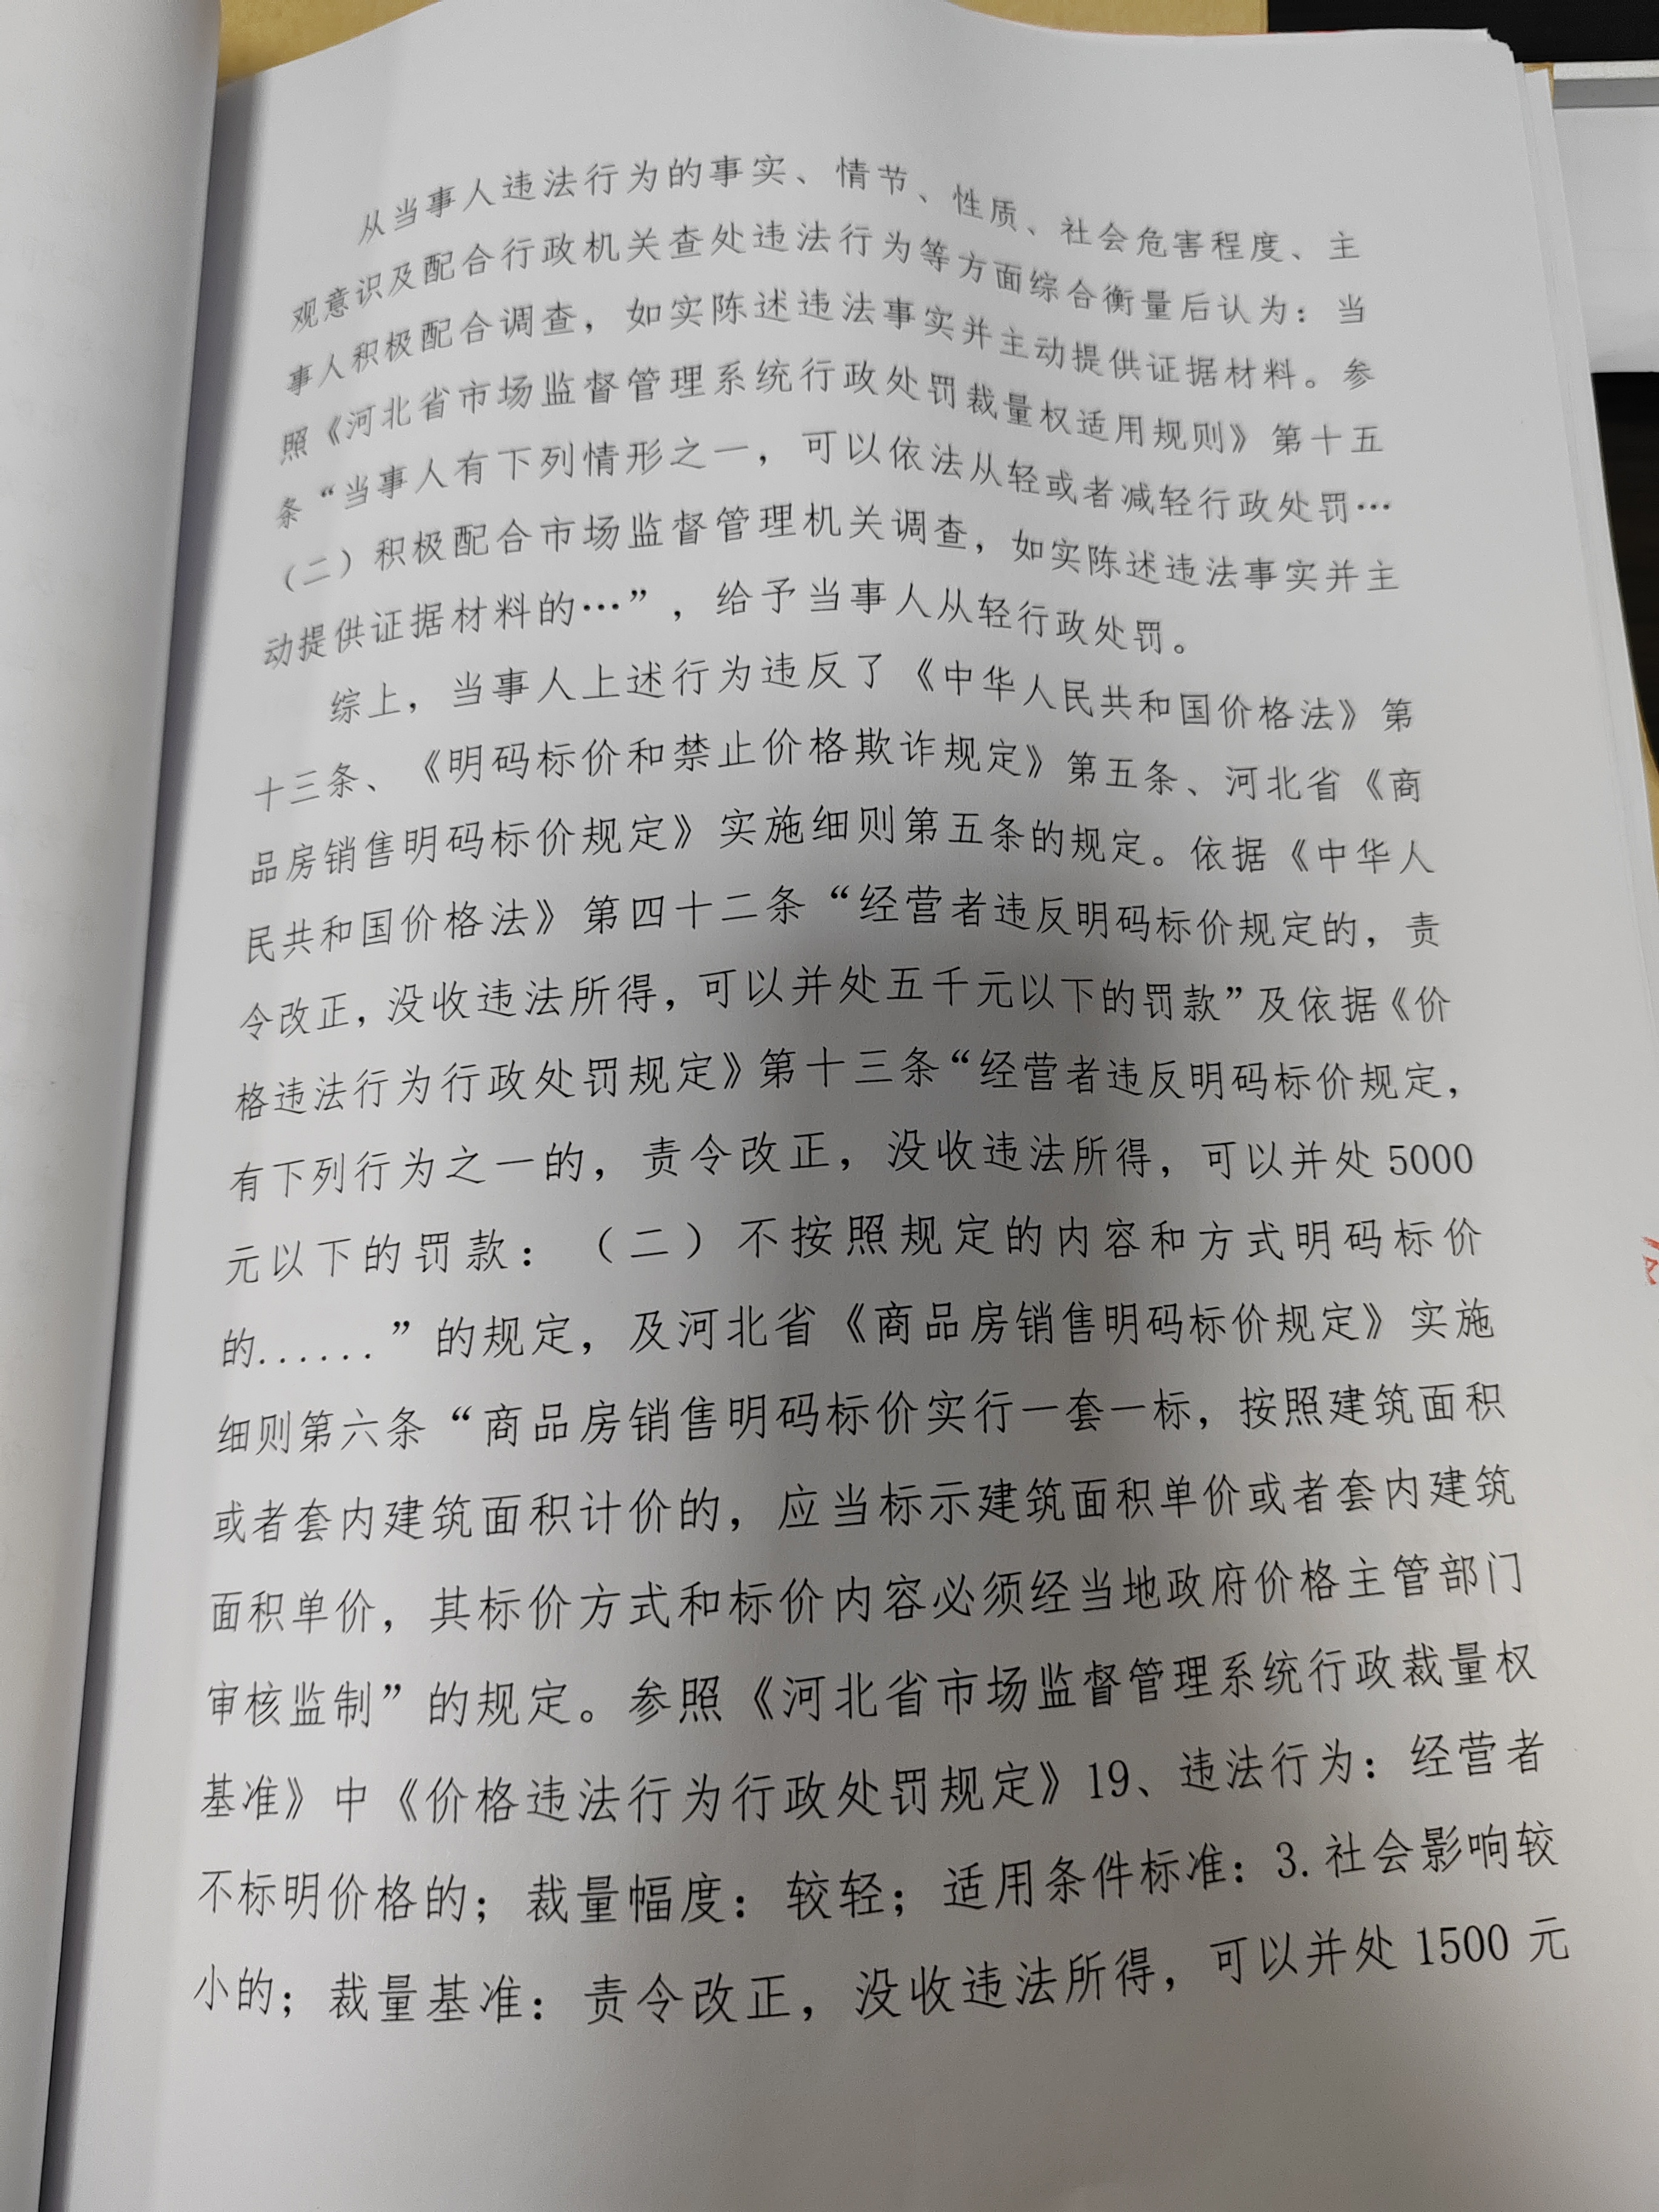 从当事人违法行为的事实、情节、性质、社会危害程度、主
观意识及配合行政机关查处违法行为等方面综合衡量后认为：当
事人积极配合调查，如实陈述违法事实并主动提供证据材料。参
照《河北省市场监督管理系统行政处罚裁量权适用规则》第十五
条“当事人有下列情形之一，可以依法从轻或者减轻行政处罚…
（二）积极配合市场监督管理机关调查，如实陈述违法事实并主
动提供证据材料的…”，给予当事人从轻行政处罚。
综上，当事人上述行为违反了《中华人民共和国价格法》第
十三条、《明码标价和禁止价格欺诈规定》第五条、河北省《商
品房销售明码标价规定》实施细则第五条的规定。依据《中华人
民共和国价格法》第四十二条“经营者违反明码标价规定的，责
令改正，没收违法所得，可以并处五千元以下的罚款”及依据《价
格违法行为行政处罚规定》第十三条“经营者违反明码标价规定，
有下列行为之一的，责令改正，没收违法所得，可以并处 5000
元以下的罚款：（二）不按照规定的内容和方式明码标价
的......”的规定，及河北省《商品房销售明码标价规定》实施
细则第六条“商品房销售明码标价实行一套一标，按照建筑面积
或者套内建筑面积计价的，应当标示建筑面积单价或者套内建筑
面积单价，其标价方式和标价内容必须经当地政府价格主管部门
审核监制”的规定。参照《河北省市场监督管理系统行政裁量权
基准》中《价格违法行为行政处罚规定》19、违法行为：经营者
不标明价格的；裁量幅度：较轻；适用条件标准：3.社会影响较
小的；裁量基准：责令改正，没收违法所得，可以并处 1500 元